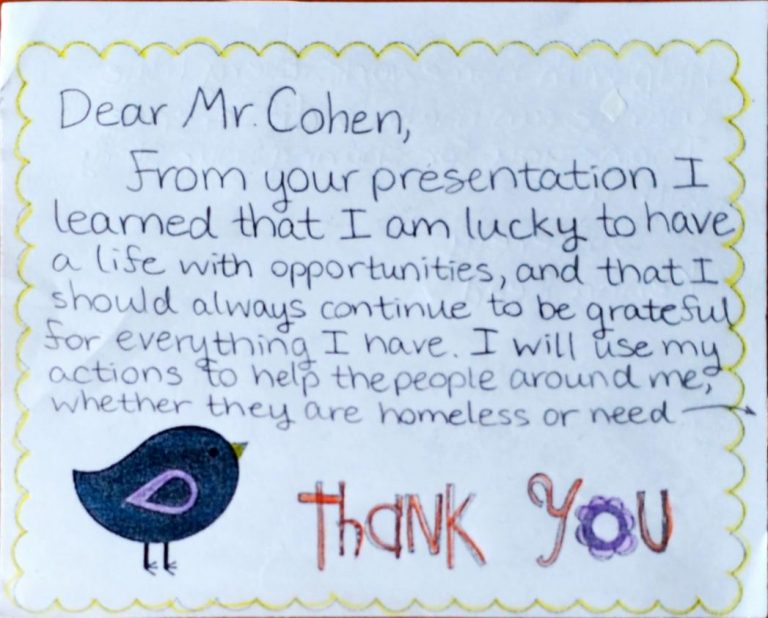 Dear Mr. Cohen,
From your presentation I
learned that I am lucky to have
a life with opportunities, and that I
should always continue to be grateful
for everything I have. I will use my
actions to help the people around me,
whether they are homeless or need
THANK YOU